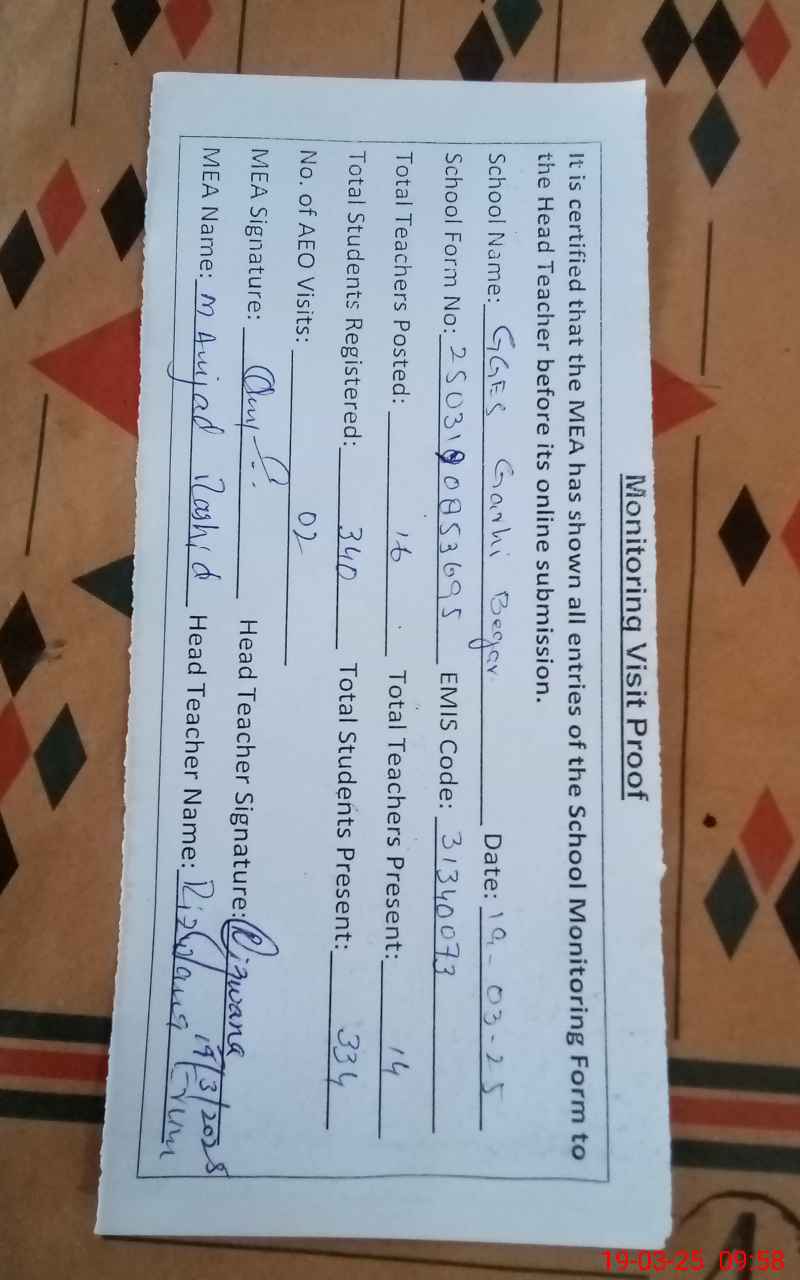 Monitoring Visit Proof
It is certified that the MEA has shown all entries of the School Monitoring Form to
the Head Teacher before its online submission.
School Name: GGES Garhi Begar Date: 19-03-25
School Form No: 2503190853695 EMIS Code: 31340073
Total Teachers Posted: 16 Total Teachers Present: 14
Total Students Registered: 340 Total Students Present: 334
No. of AEO Visits: 02
MEA Signature: Head Teacher Signature: Rizwana
19/3/2025
MEA Name: M Amjad Rashid Head Teacher Name: Rizwana
19-03-25 09:58